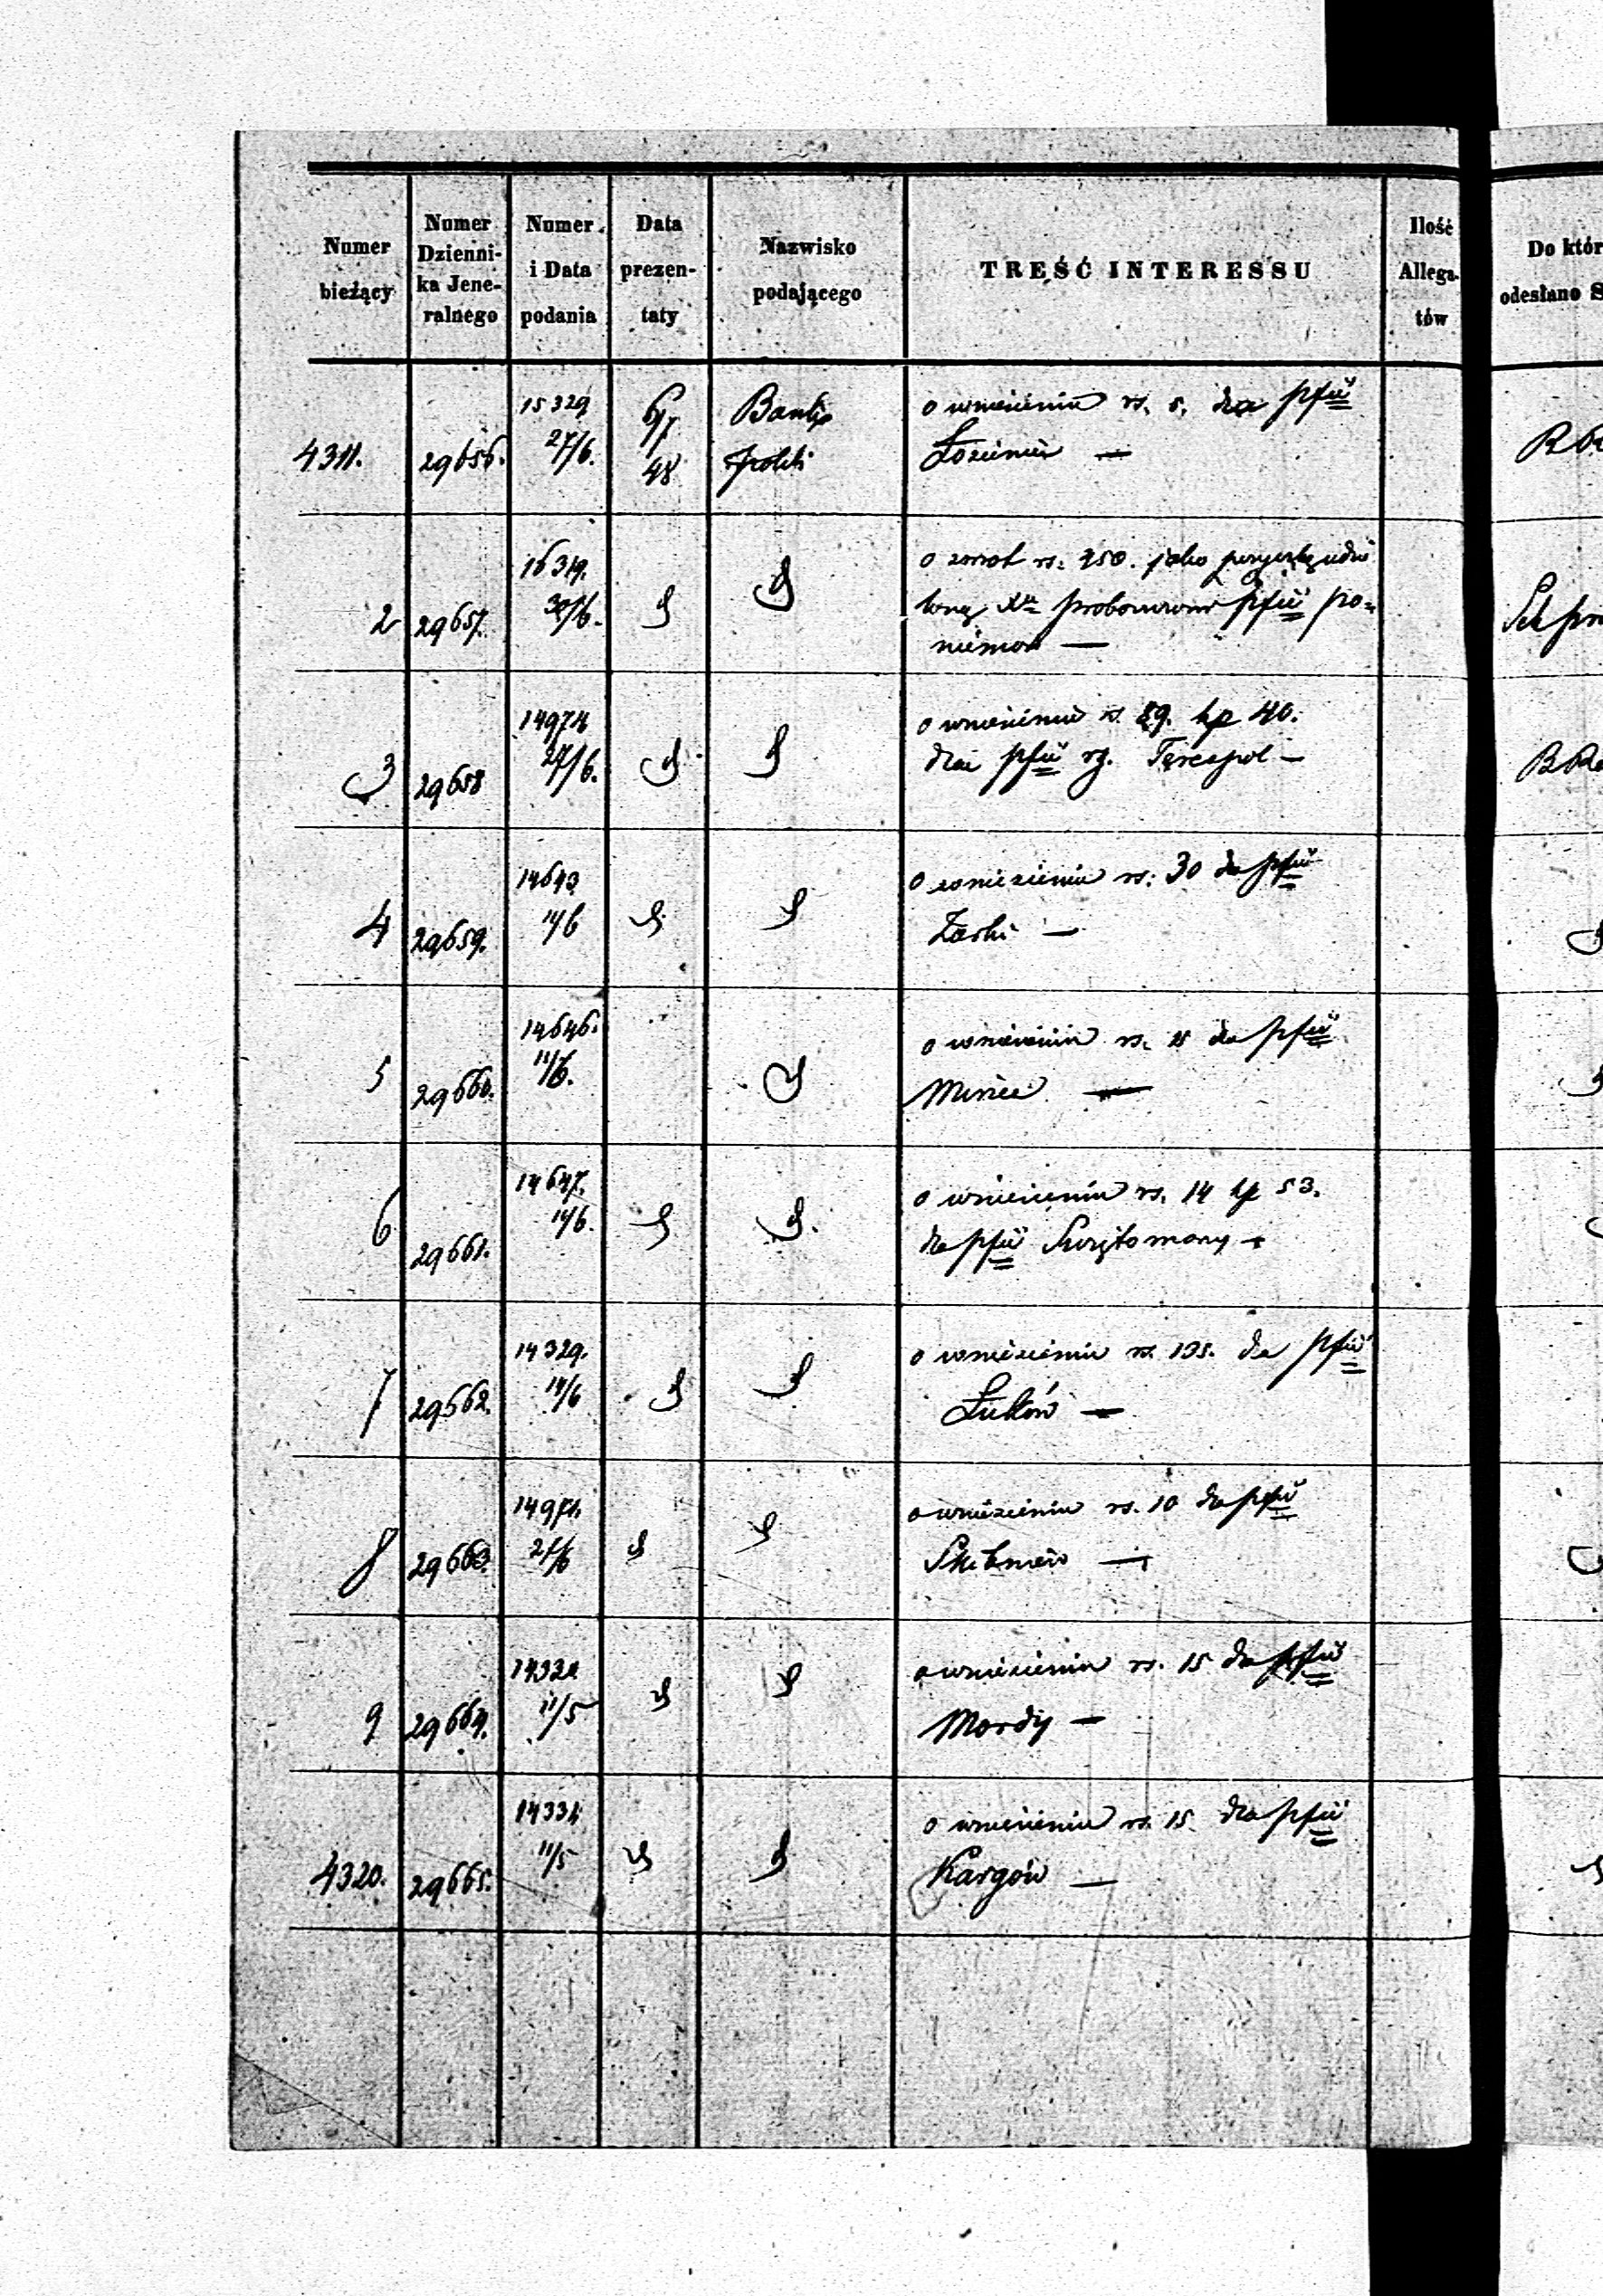 Numer bieżący
Numer Dzienni-
ka Jene-
ralnego
Numer
i Data
podania
Data
prezen-
taty
Nazwisko
podającego
TREŚĆ INTERESSU
Ilość
Allega-
tów
Do któr
odesłano S
4311. 29656. 15329 27/6. 6/7 48 Bank Polski
o wniesieniu rs. 5. dla pfii
2 29657. 16319. 30/6.
o zwrot rs. 750. jako pożyczkę udzie
loną Xu proboszczowi pfii po=
niemoń —
3 29658 14974 27/6.
o wniesieniu rs. 29. kp 40.
dla pfii Terespol —
4 29659. 14643 11/6
o wniesieniu rs. 30 dla pfii
Żarki —
5 29660. 14646. 11/6.
o wniesieniu rs. 15 dla pfii
6 29661. 14647. 11/6.
o wniesieniu rs. 14 kp 53.
dla pfii Swiętomany —
7 29662. 14329. 11/6
o wniesieniu rs. 135. dla pfii
Łuków —
8 29663. 14971. 21/6
o wniesieniu rs. 10 dla pfii
Skibniew —
9 29664. 11/5
o wniesieniu rs. 15 dla pfii
Mordy —
4320. 29665. 14331 11/5
o wniesieniu rs. 15. dla pfii
Kargów —